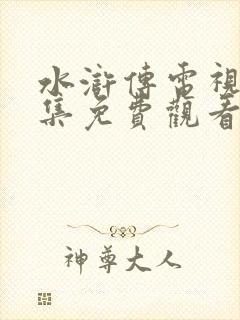 水滸傳電視
集免費觀看
神尊大人